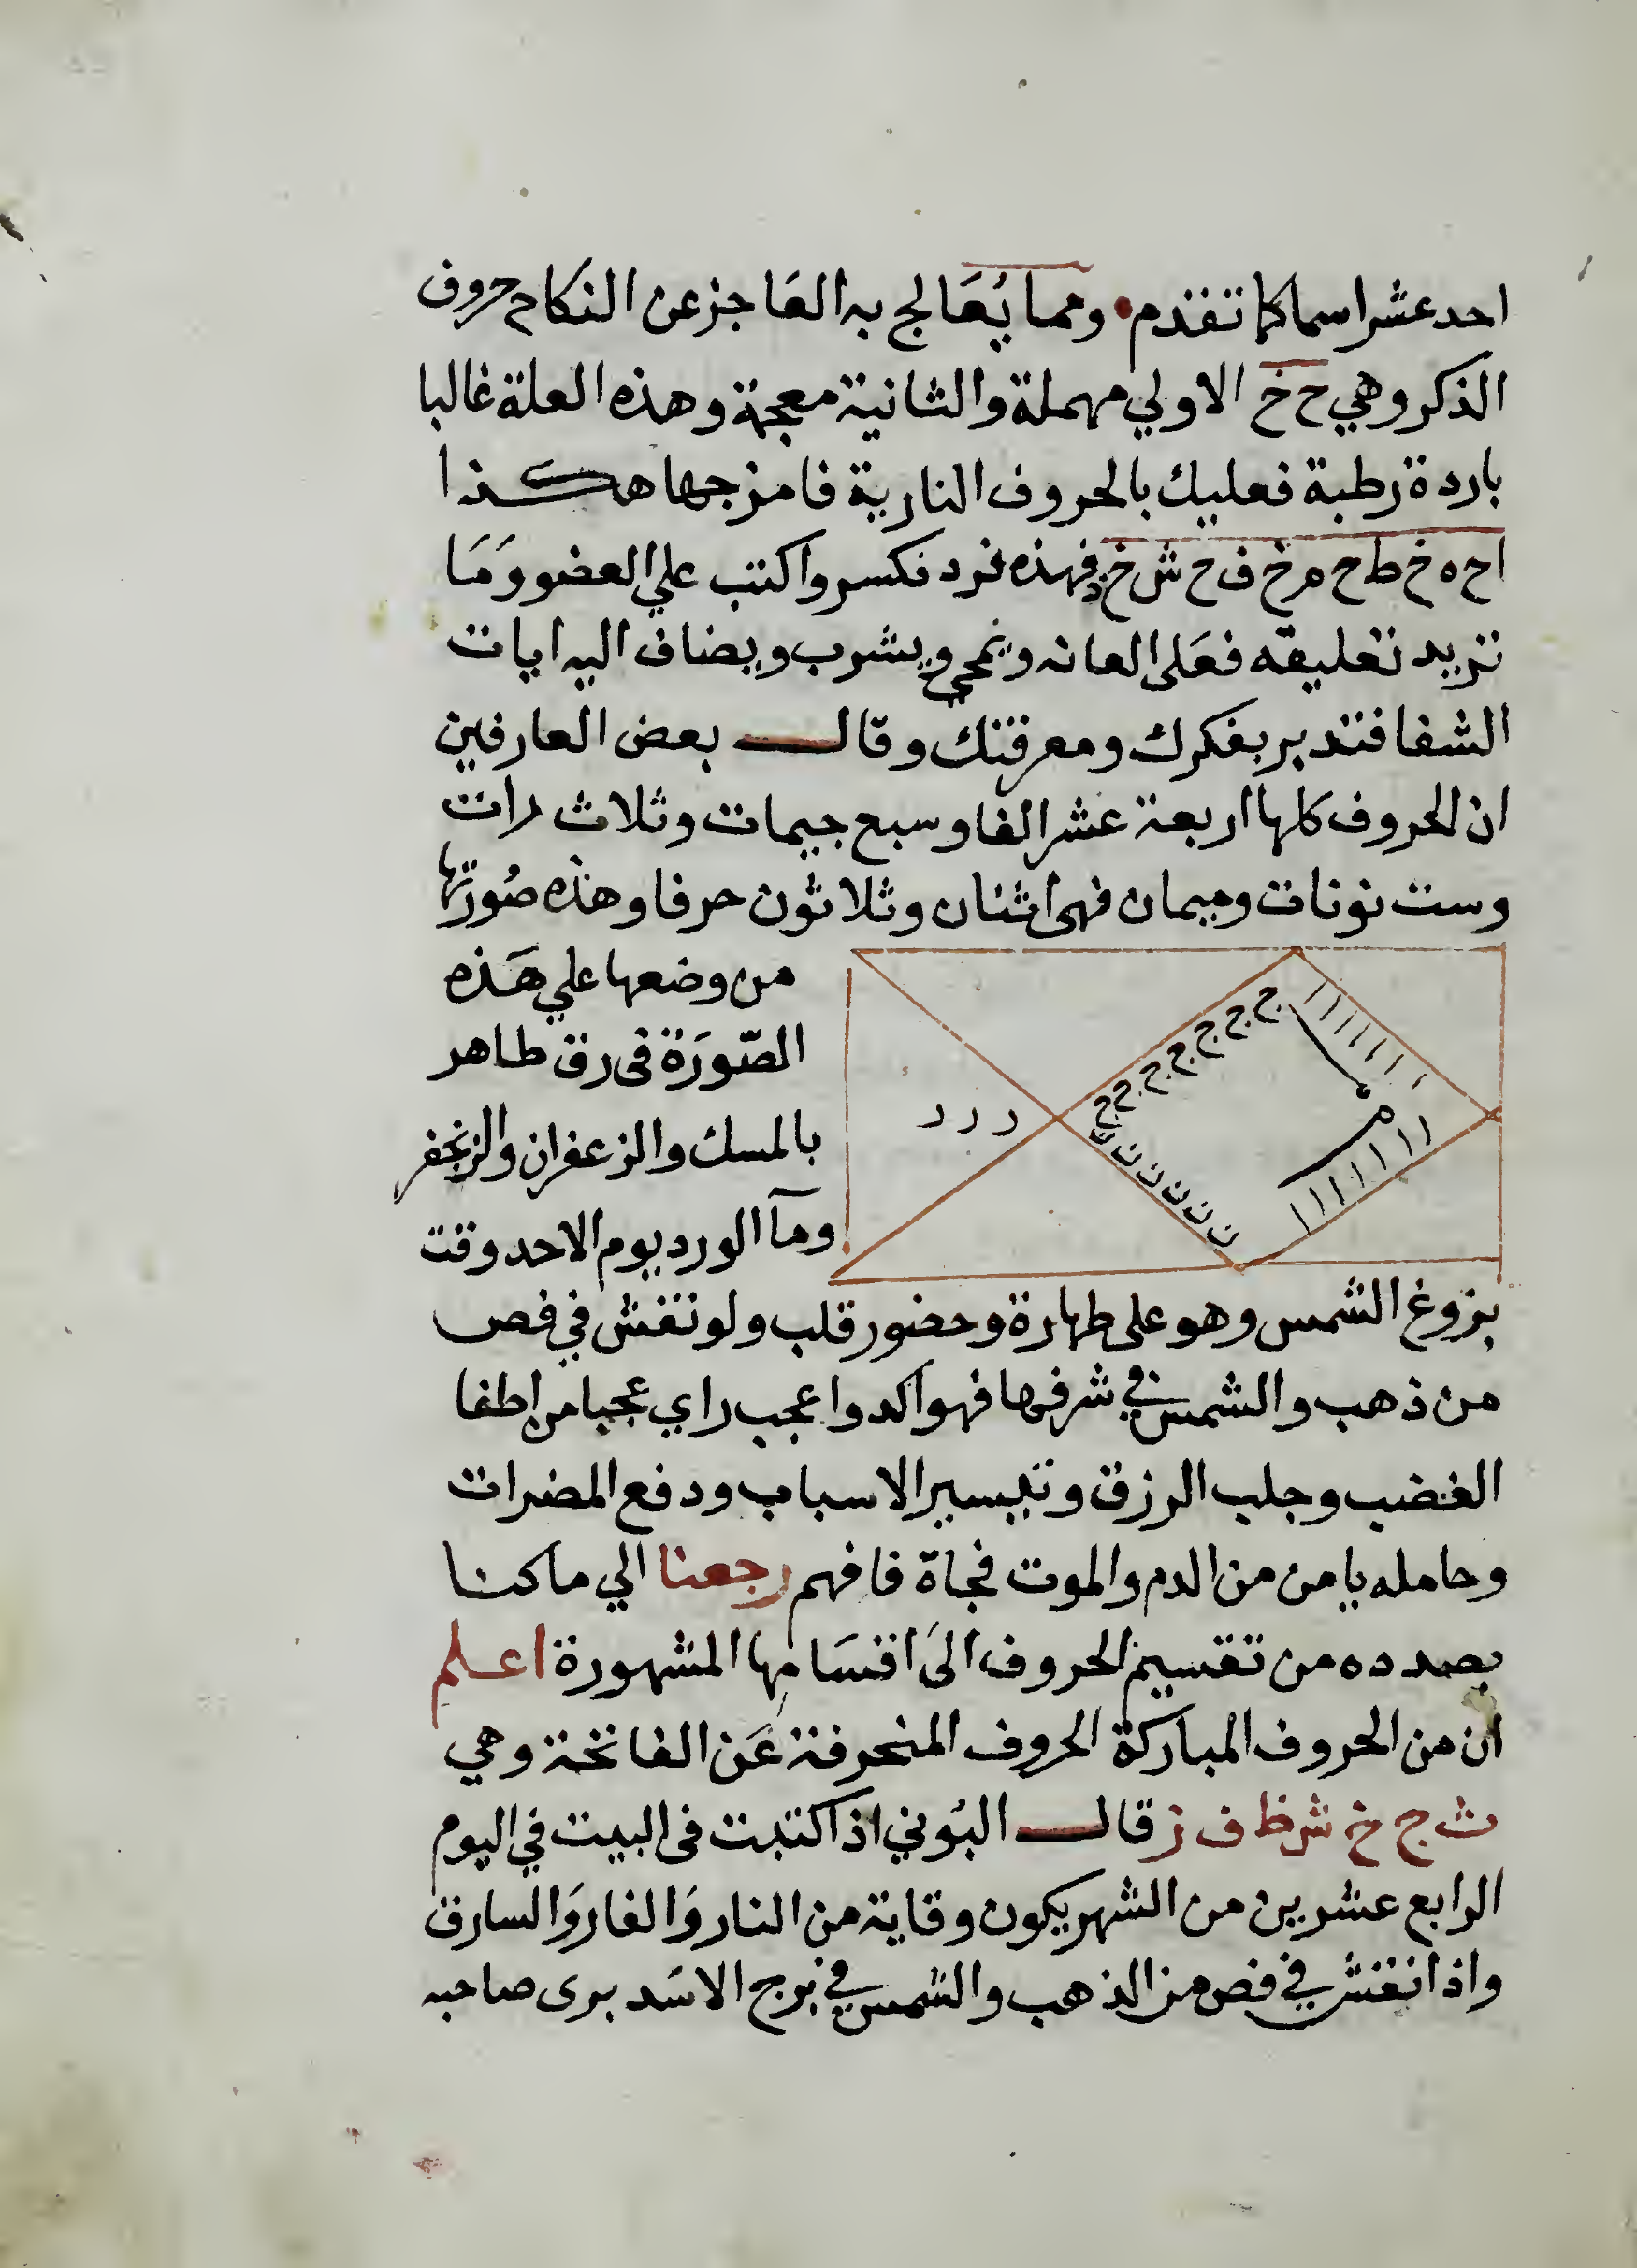 احد عشر اسما كما تقدم ومما يُعَالج به العَاجز عن النكاح حروف
الذكر وهي ح خ الاولي مهملة والثانية معجمة وهذه العلة غالبا
باردة رطبة فعليك بالحروف النارية فامزجها هكذا
ا ح ه خ ط ح م خ ف ح ش خ فهذه فرد فكسر واكتب علي العضو وَمَا
تريد تعليقه فعَلى العانه ويمحي ويشرب ويضاف اليه ايات
الشفا فتدبر بفكرك ومعرفتك وقال بعض العارفين
ان الحروف كلها اربعة عشر الفا وسبع جيمات وثلاث رات
وست نونات وميمان فهى اثنان وثلاثون حرفا وهذه صُورتها
من وضعها علي هَذه
الصّورَة فى رق طاهر
بالمسك والزعفران والزنجفر
ومآ الورد يوم الاحد وقت
ج ج ج ج ج ج ج
ا ا ا ا ا ا ا
م
م
ا ا ا ا ا ا ا
ن ن ن ن ن ن
ر ر ر
بزوغ الشمس وهو على طهارة وحضور قلب ولو نقش في فص
من ذهب والشمس في شرفها فهو اكد واعجب راي عجبا من اطفا
الغضب وجلب الرزق وتيسير الاسباب ودفع المضرات
وحامله يامن من الدم والموت فجاة فافهم رجعنا الي ما كنا
بصدده من تقسيم الحروف الىَ اقسَامها المشهورة اعلم
ان من الحروف المباركة الحروف المنحرفة عَن الفاتحة وهي
ث ج خ ش ظ ف ز قال البُوني اذا كتبت فى البيت في اليوم
الرابع عشرين من الشهر يكون وقاية من النار وَالفار وَالسارق
واذا نقش في فص من الذهب والشمس في برج الاسَد يرى صاحبه